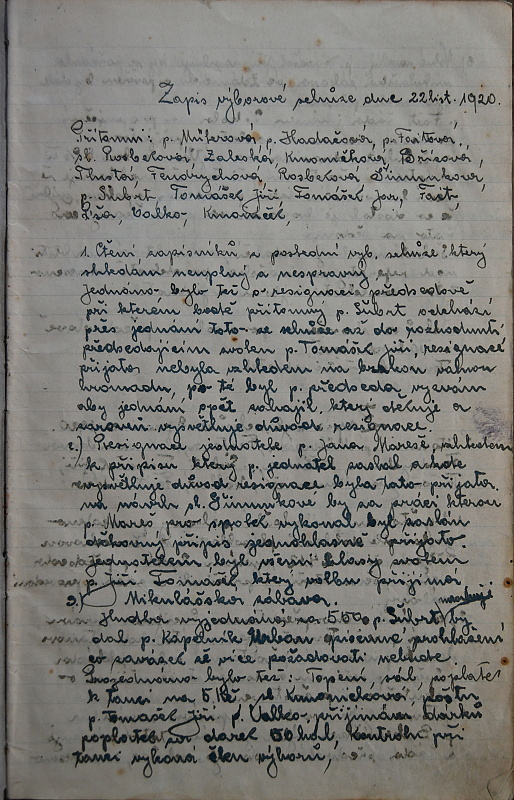 Zapis výborové schůze dne 22 list. 1920.
Přítomni: p. Müllerová p. Hadačová, p. Fořtová,
Sl. Rosbekova, Zaleská, Kunoměkova,
Tlustá, Fendrychova, Rosbekova Šimunkova,
p. Šubrt, Tomášek Jiří Tomášek Jar, Fait,
Volko,
1. Čtení zapisníků z poslední vyb. schůze který
shledám neuplný a nespravný
Jednáno bylo též o resignaci předsedově
při kterém bodě přítomný p. Šubrt odchází
přes jednání toto ze schůze až do rozhodnutí
předsedajícím zvolen p. Tomášek Jiří, resignace
přijata nebyla vzhledem na valnou
hromadu, po té byl p. předseda vyzván
aby jednání opět zahajil, který děkuje a
zároveň vysvětluje důvod resignace.
2.) Resignace jednatele p. Jana Mareše vzhledem
k přípisu který p. jednatel zaslal a kde
vysvětluje důvod resignace byla tato přijata.
na návrh sl. Šimunkové by za práci kterou
p. Mareš pro spolek vykonal byl zaslán
děkovný připis jednohlasně přijato.
jednatelem byl všemi hlasy zvolen
p. Jiří Tomášek který volbu přijímá
3.) Mikulášska zábava.
Hudba vyjednána za 550 p. Šubrt by
dal p. Kapelník Urban písemné prohlášení
co závazek že více požadovati nebude
Projednáno bylo též: Topení, sál, poplatek
k tanci na 5 Kč, sl.
p. Tomášek Jiří p. Volko, přijímána dárků
poplatek za darek 50 hal, kontrolu při
tanci vykoná člen výborů,